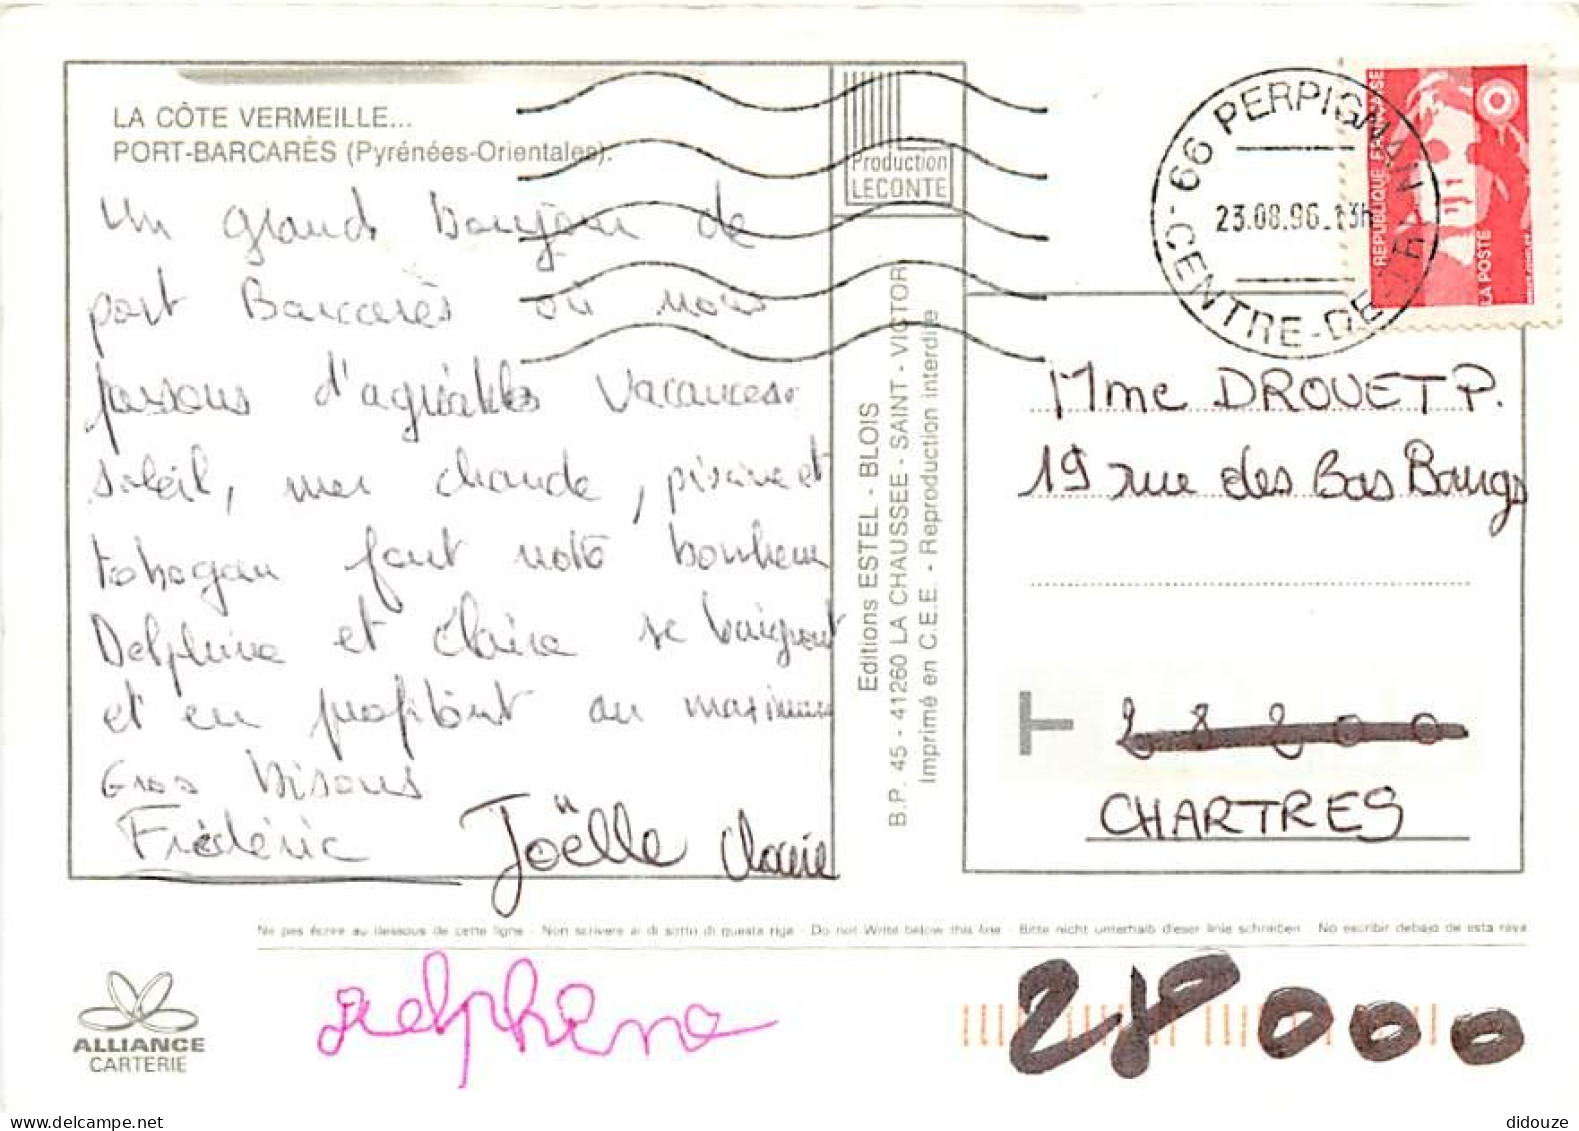 LA CÔTE VERMEILLE...
PORT-BARCARÈS (Pyrénées-Orientales).
Un grand bonjour de
port Barcarès où nous
passons d'agréables vacances.
soleil, mer chaude, piscine et
tobogan font notre bonheur
Delphine et Claire se baignent
et en profitent au maximum
Gros Bisous
Frédéric Joëlle Claire
delphine
Production
LECONTE
Editions ESTEL - BLOIS
B.P. 45 - 41260 LA CHAUSSEE - SAINT - VICTOR
Imprimé en C.E.E. - Reproduction interdite
66 PERPIGNAN RP
CENTRE-DE-TRI
23.08.96.13h
REPUBLIQUE FRANÇAISE
LA POSTE
Mme DROUET P.
19 rue des Bas Bourgs
28200
CHARTRES
Ne pas écrire au dessous de cette ligne - Non scrivere al di sotto di questa riga - Do not Write below this line - Bitte nicht unterhalb dieser linie schreiben - No escribir debajo de esta raya
28000
ALLIANCE
CARTERIE
delcampe.net
didouze